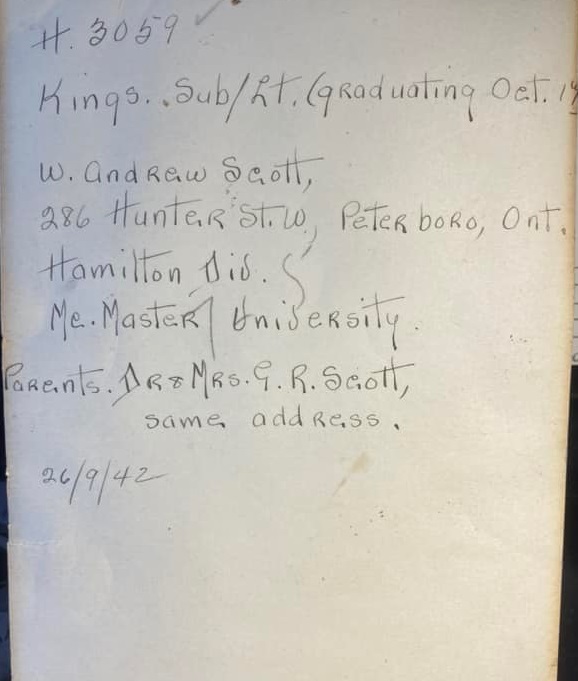 H. 3059
Kings. Sub/Lt. (graduating Oct. 19
W. Andrew Scott,
286 Hunter St. W, Peterboro, Ont.
Hamilton Div.
Mc. Master University.
Parents. Dr & Mrs. G. R. Scott,
same address.
26/9/42